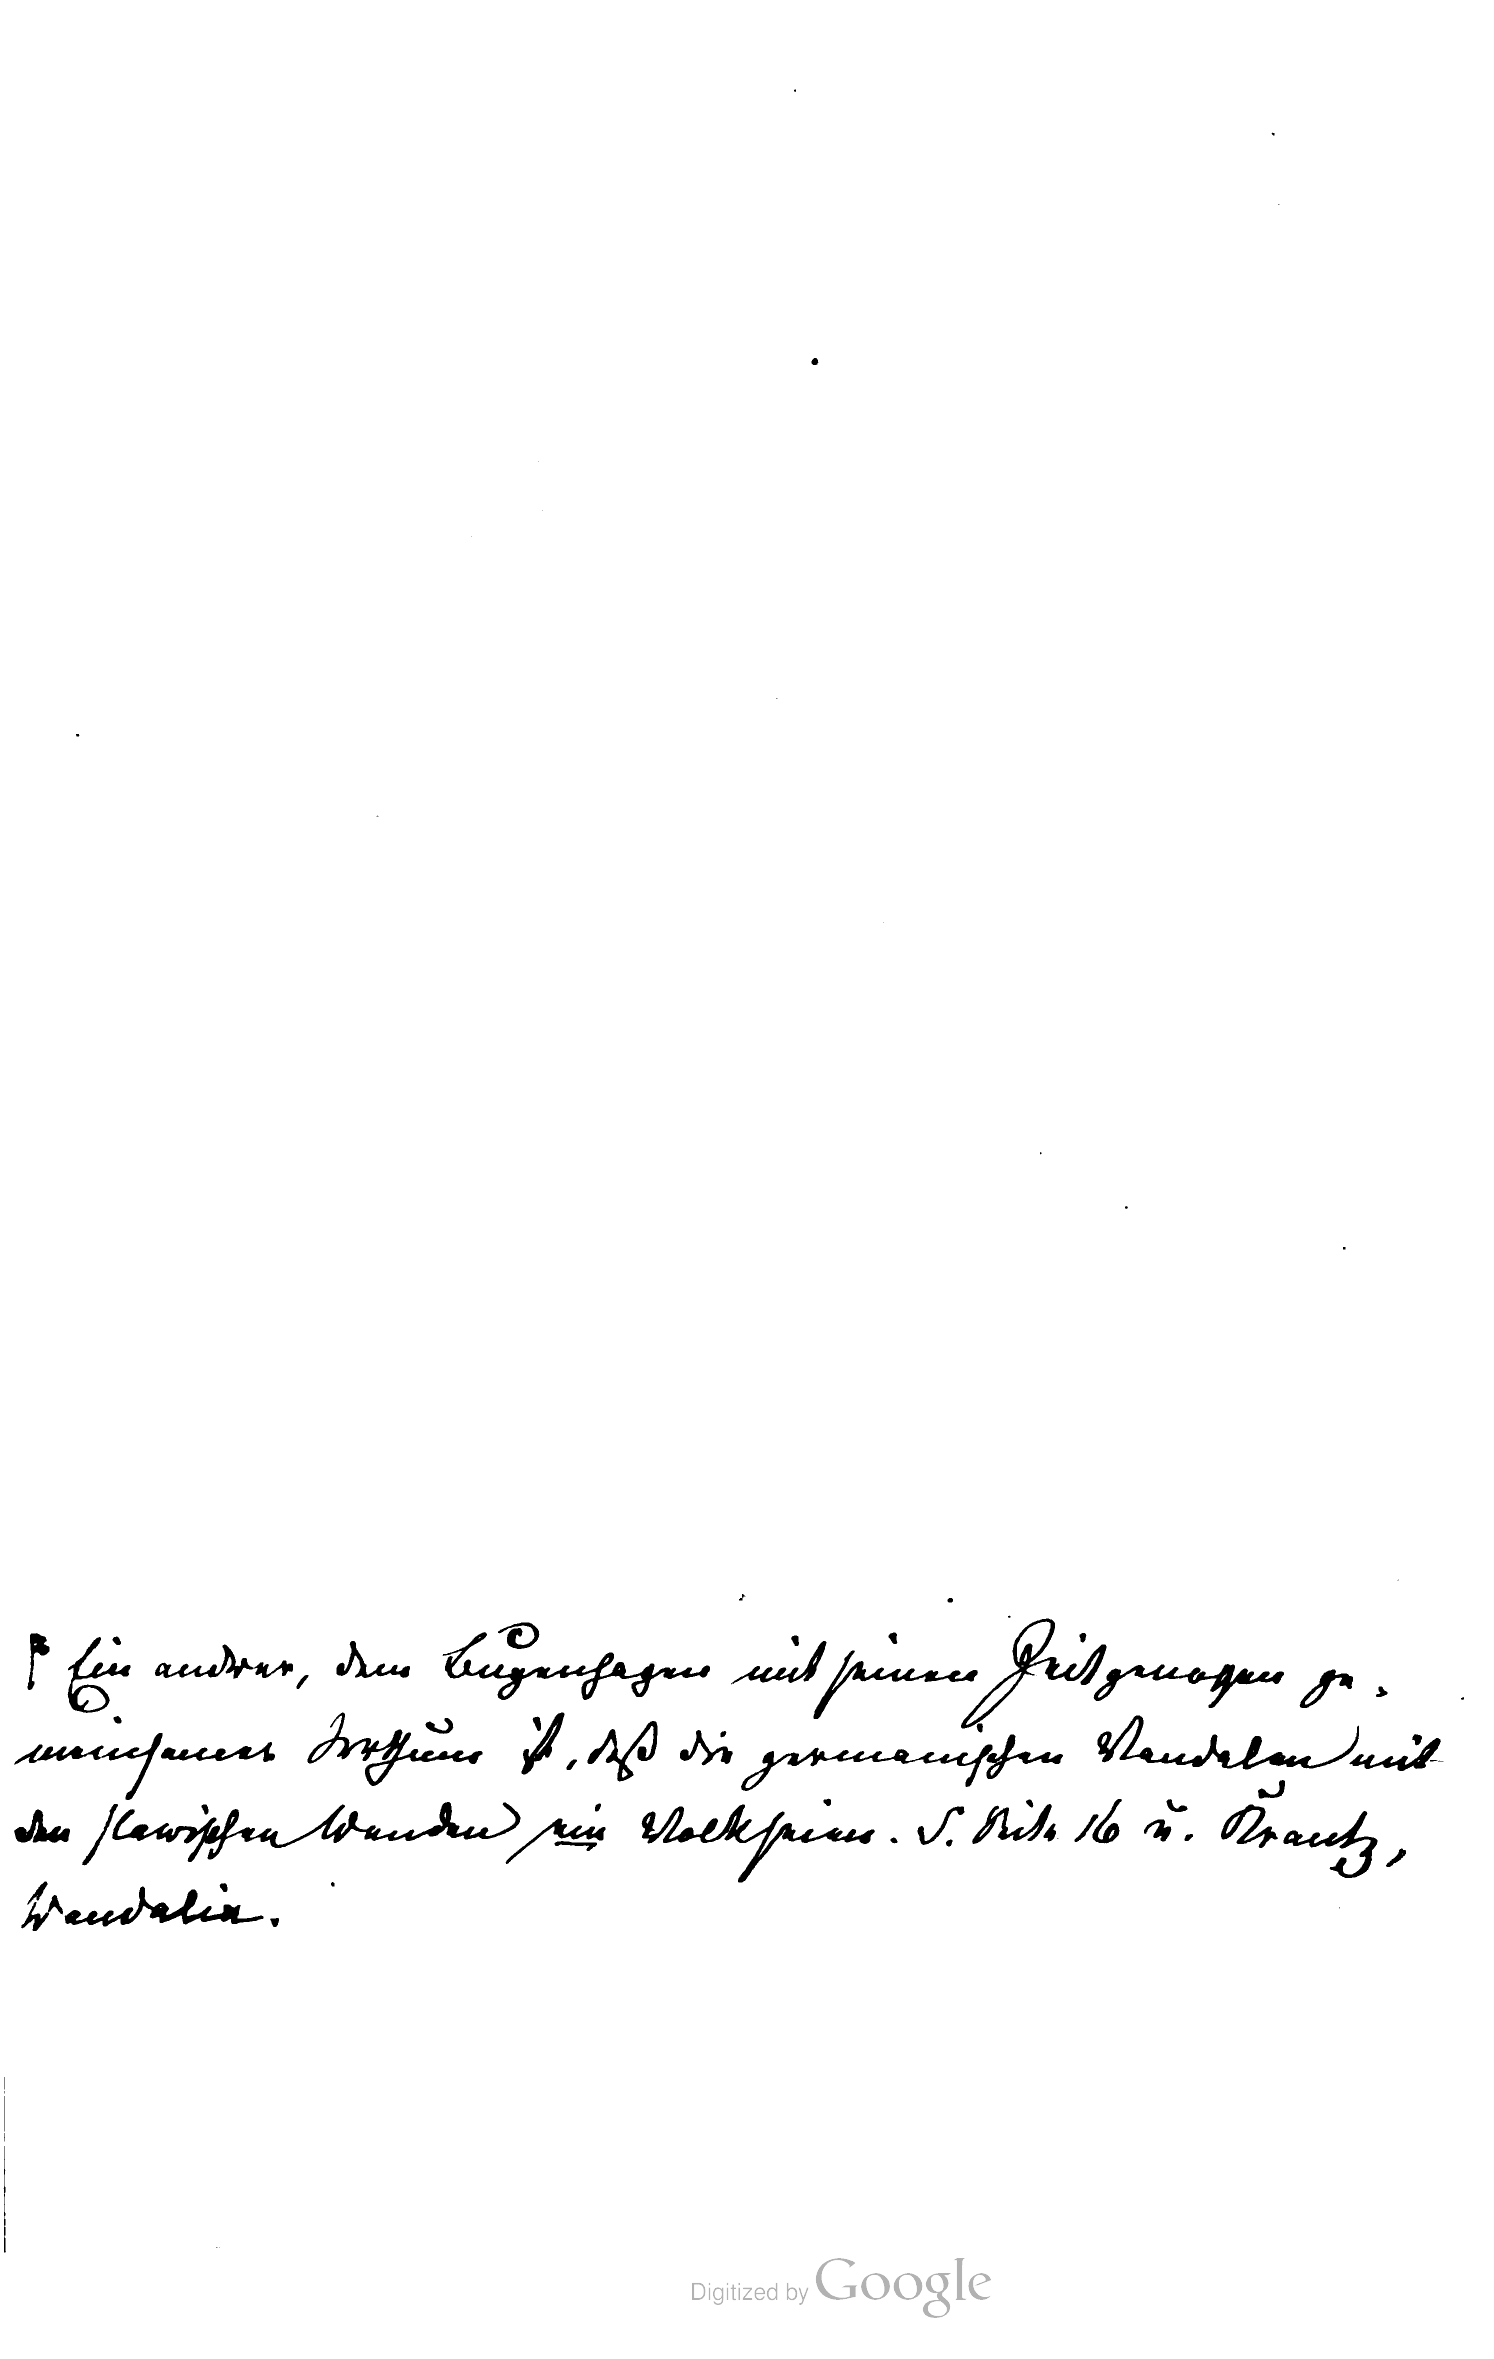 Ein andrer, dem Bugenhagen mit seinen Zeitgenossen ge-
meinsamer Irrthum ist, daß die germanischen Vandalen mit
den slawischen Wenden ein Volk seien. S. Seite 16 u. Krantz,
Wandalia.
Digitized by Google